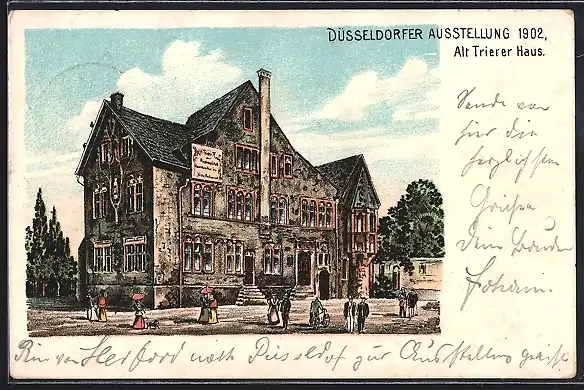 DÜSSELDORFER AUSSTELLUNG 1902,
Alt Trierer Haus.
Sende von
hier die
herzlichsten
Grüsse
Dein Bruder
Johann.
Bin von Herford nach Düsseldorf zur Ausstellung gereist